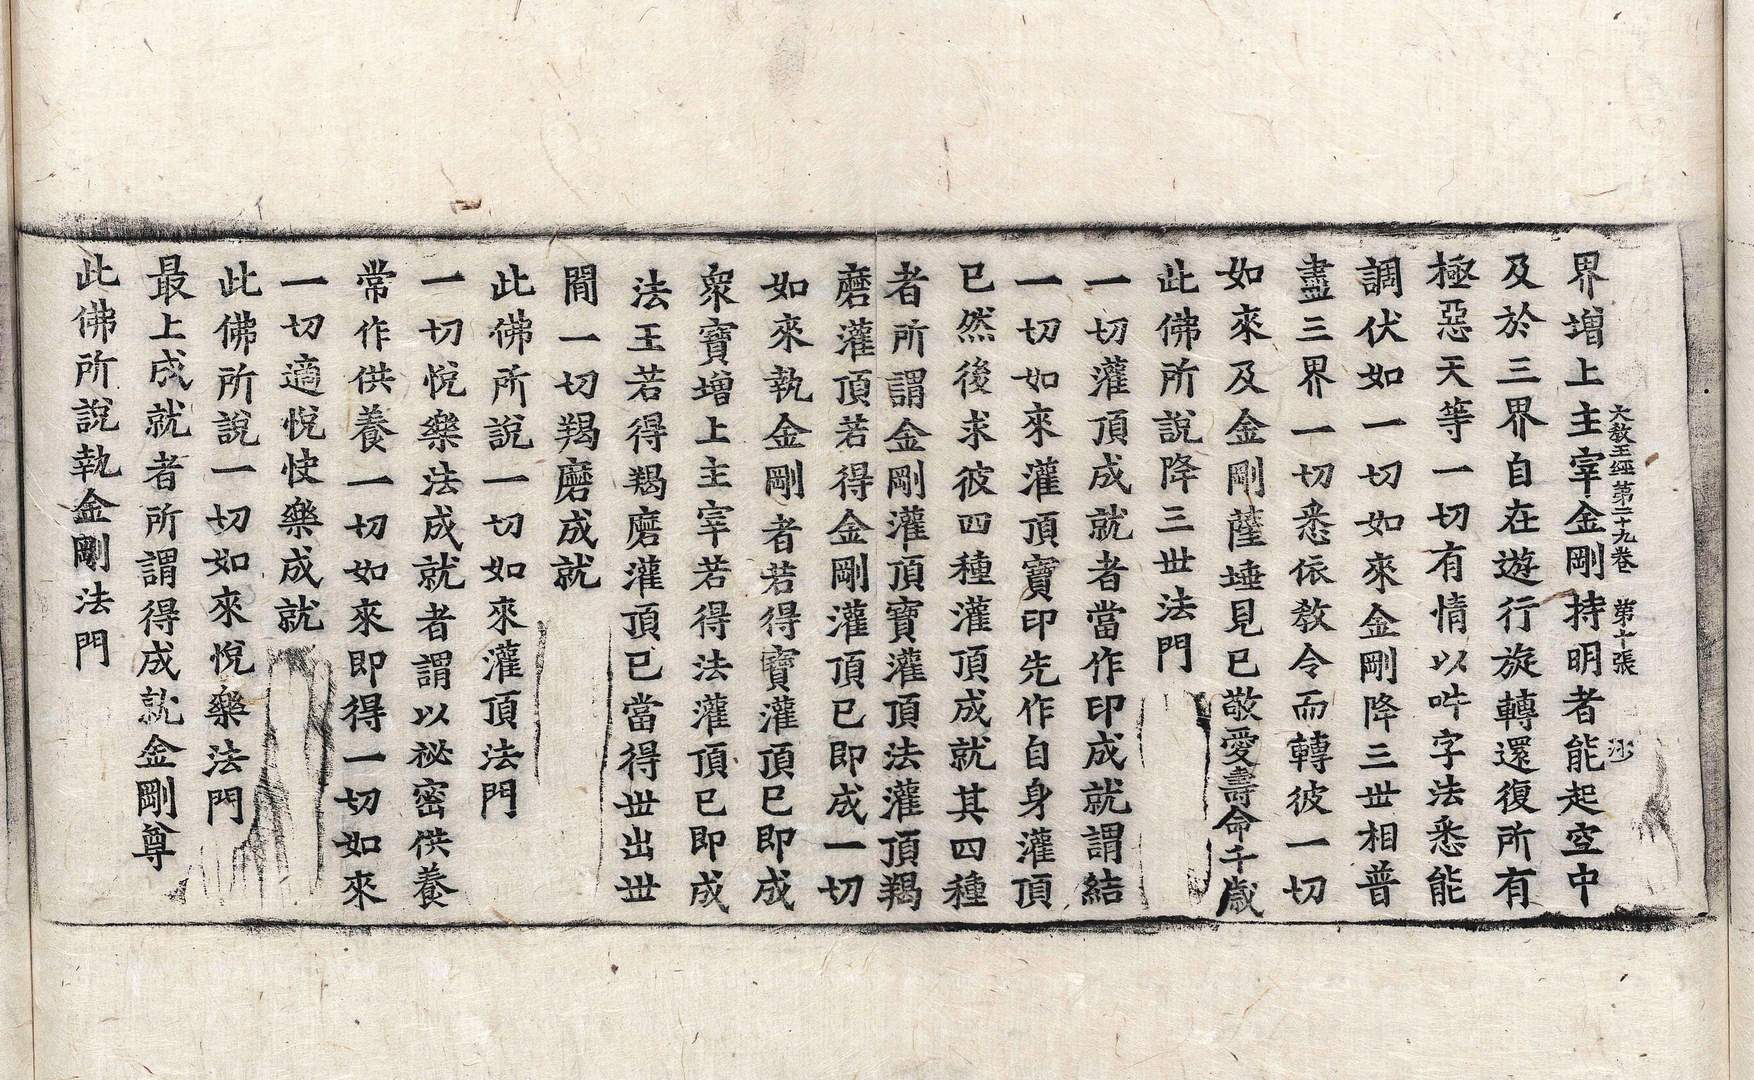 大教王經第二十九卷　第十張　沙
界增上主宰金剛持明者能起空中
及於三界自在遊行旋轉還復所有
極惡天等一切有情以吽字法悉能
調伏如一切如來金剛降三世相普
盡三界一切悉依教令而轉彼一切
如來及金剛薩埵見已敬愛壽命千歲
此佛所說降三世法門
一切灌頂成就者當作印成就謂結
一切如來灌頂寶印先作自身灌頂
已然後求彼四種灌頂成就其四種
者所謂金剛灌頂寶灌頂法灌頂羯
磨灌頂若得金剛灌頂已即成一切
如來執金剛者若得寶灌頂已即成
衆寶增上主宰若得法灌頂已即成
法王若得羯磨灌頂已當得世出世
閒一切羯磨成就
此佛所說一切如來灌頂法門
一切悅樂法成就者謂以祕密供養
常作供養一切如來即得一切如來
一切適悅快樂成就
此佛所說一切如來悅樂法門
最上成就者所謂得成就金剛尊
此佛所說執金剛法門